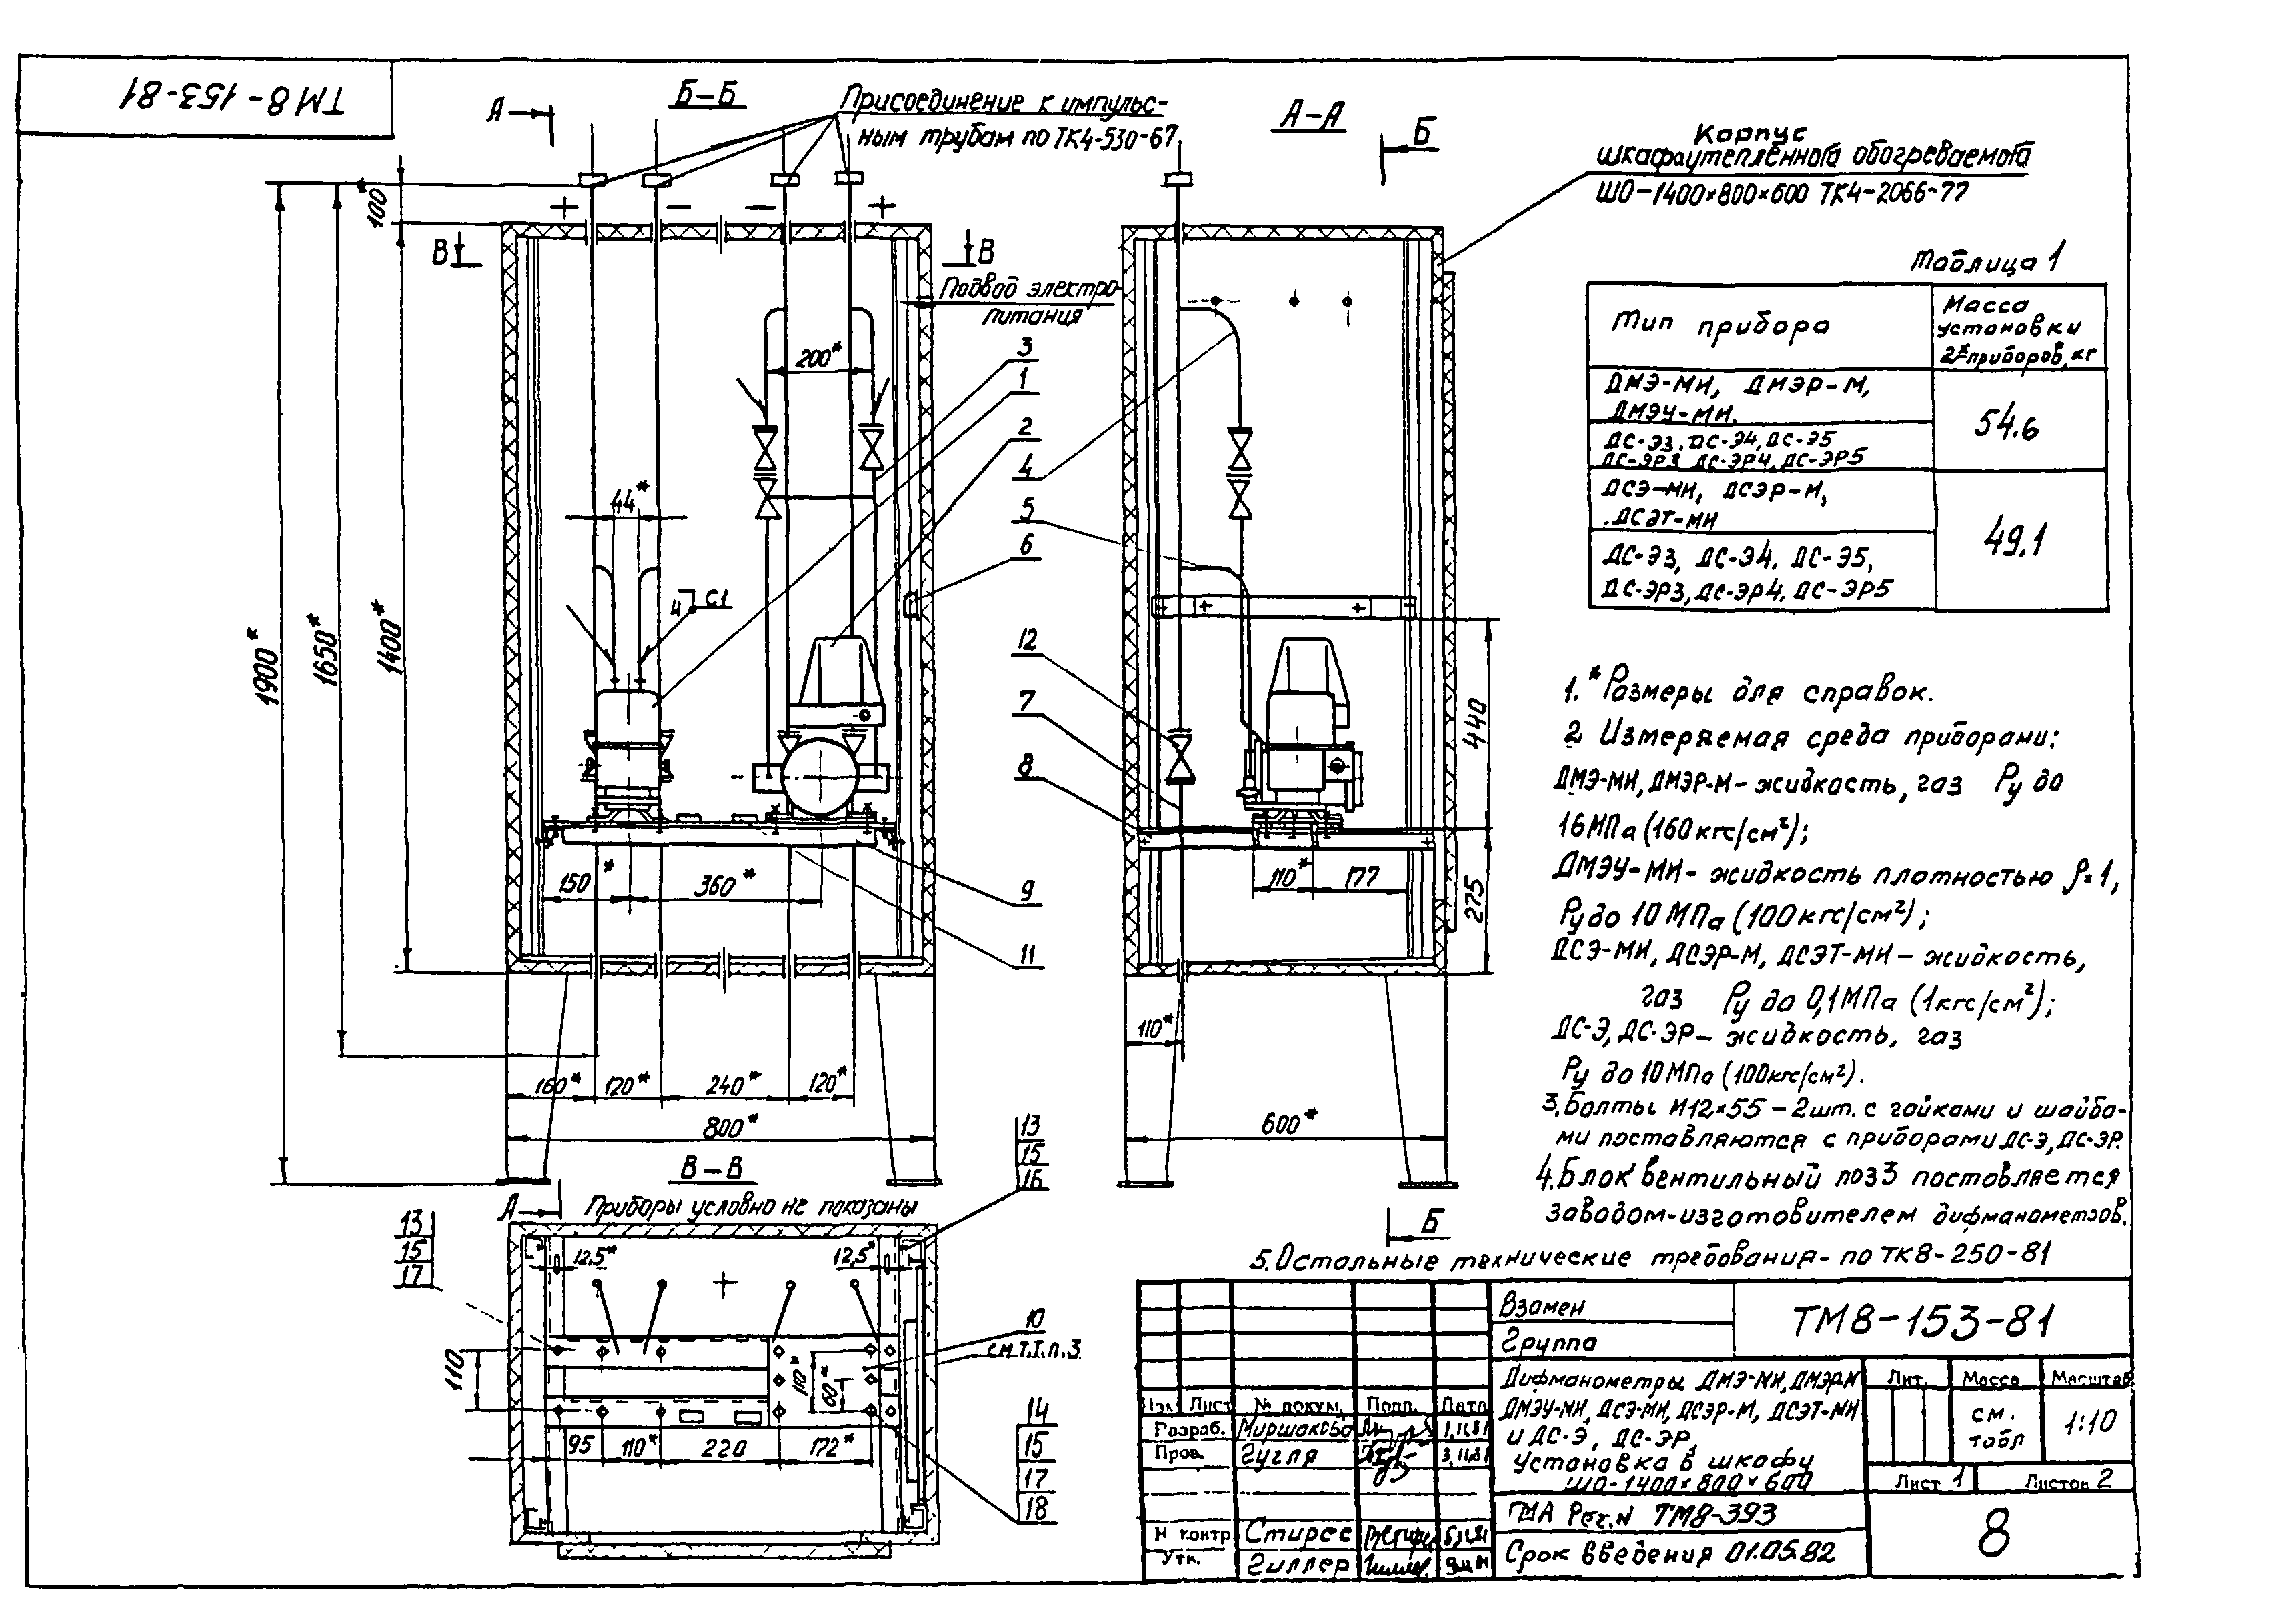 ТМ8-153-81
А
Б-Б
Присоединение к импульс-
ным трубам по ТК4-530-67
А-А
Б
Корпус
шкафа утепленного обогреваемого
ШО-1400×800×600 ТК4-2066-77
100*
+
-
-
+
В
В
Подвод электро-
питания
200*
3
1
2
4
5
6
44*
4
С1
12
7
8
9
11
1900*
1650*
1400*
150*
360*
160*
120*
240*
120*
800*
440
275
110*
177
110*
600*
Таблица 1
Тип прибора
Масса
установки
2х приборов, кг
ДМЭ-МИ, ДМЭР-М,
ДМЭУ-МИ.
ДС-Э3, ДС-Э4, ДС-Э5
ДС-ЭР3, ДС-ЭР4, ДС-ЭР5
54.6
ДСЭ-МИ, ДСЭР-М,
ДСЭТ-МИ
ДС-Э3, ДС-Э4, ДС-Э5,
ДС-ЭР3, ДС-ЭР4, ДС-ЭР5
49.1
1.* Размеры для справок.
2 Измеряемая среда приборами:
ДМЭ-МИ, ДМЭР-М-жидкость, газ Ру до
16МПа (160кгс/см²);
ДМЭУ-МИ- жидкость плотностью ρ=1,
Ру до 10 МПа (100кгс/см²);
ДСЭ-МИ, ДСЭР-М, ДСЭТ-МИ- жидкость,
газ Ру до 0,1МПа (1кгс/см²);
ДС-Э, ДС-ЭР- жидкость, газ
Ру до 10МПа (100кгс/см²).
3. Болты М12×55-2шт. с гайками и шайба-
ми поставляются с приборами ДС-Э, ДС-ЭР.
4. Блок вентильный поз 3 поставляется
заводом-изготовителем дифманометров.
5. Остальные технические требования- по ТК8-250-81
В-В
Приборы условно не показаны
А
Б
13
15
16
13
15
17
12,5*
12,5*
10
см.Т.Т.п.3
110
110*
60*
14
15
17
18
95
110*
220
172*
Взамен
Группа
ТМ8-153-81
Дифманометры ДМЭ-МИ, ДМЭР-М
ДМЭУ-МИ, ДСЭ-МИ, ДСЭР-М, ДСЭТ-МИ
и ДС-Э, ДС-ЭР
Установка в шкафу
ШО-1400×800×600
Лит.
Масса
Масштаб
см.
табл
1:10
Лист 1
Листов 2
Изм
Лист
№ докум.
Подп.
Дата
Разраб.
Пров.
Гугля
Н контр
Утв.
Гиллер
ГМА Рег.N ТМ8-393
Срок введения 01.05.82
8